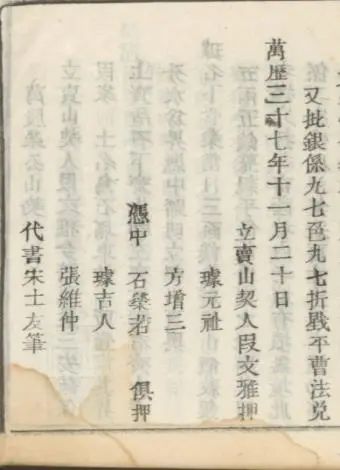 又批銀係九七色九七折戥平曹法兌
萬歷三十七年十一月二十日
立賣山契人段文雅押
璩元祉
方增三
憑中 石榮若 俱押
璩吉人
張維仲
代書朱士友筆